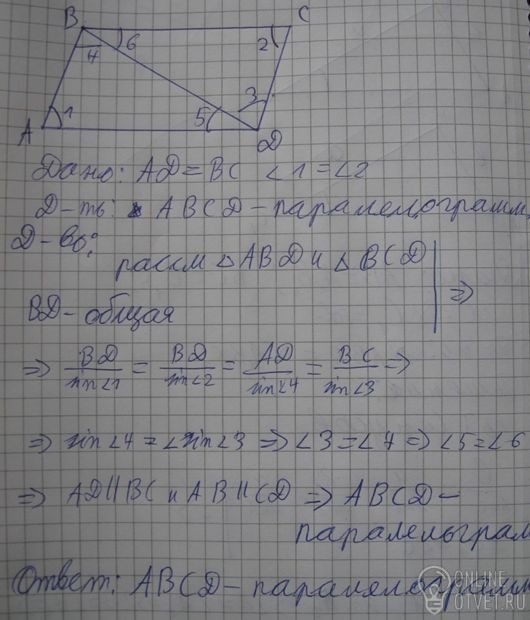 B C
6 2
4
1 5 3
A D
Дано: AD=BC ∠1=∠2
Д-ть: ABCD-паралелограмм
Д-во:
рассм △ABD и △BCD
BD-общая ⇒
⇒ BD/sin∠1 = BD/sin∠2 = AD/sin∠4 = BC/sin∠3 ⇒
⇒ sin∠4=∠sin∠3 ⇒ ∠3=∠4 ⇒ ∠5=∠6
⇒ AD||BC и AB||CD ⇒ ABCD-
паралельграм
Ответ: ABCD-паралелограмм
ONLINE
OTVET.RU